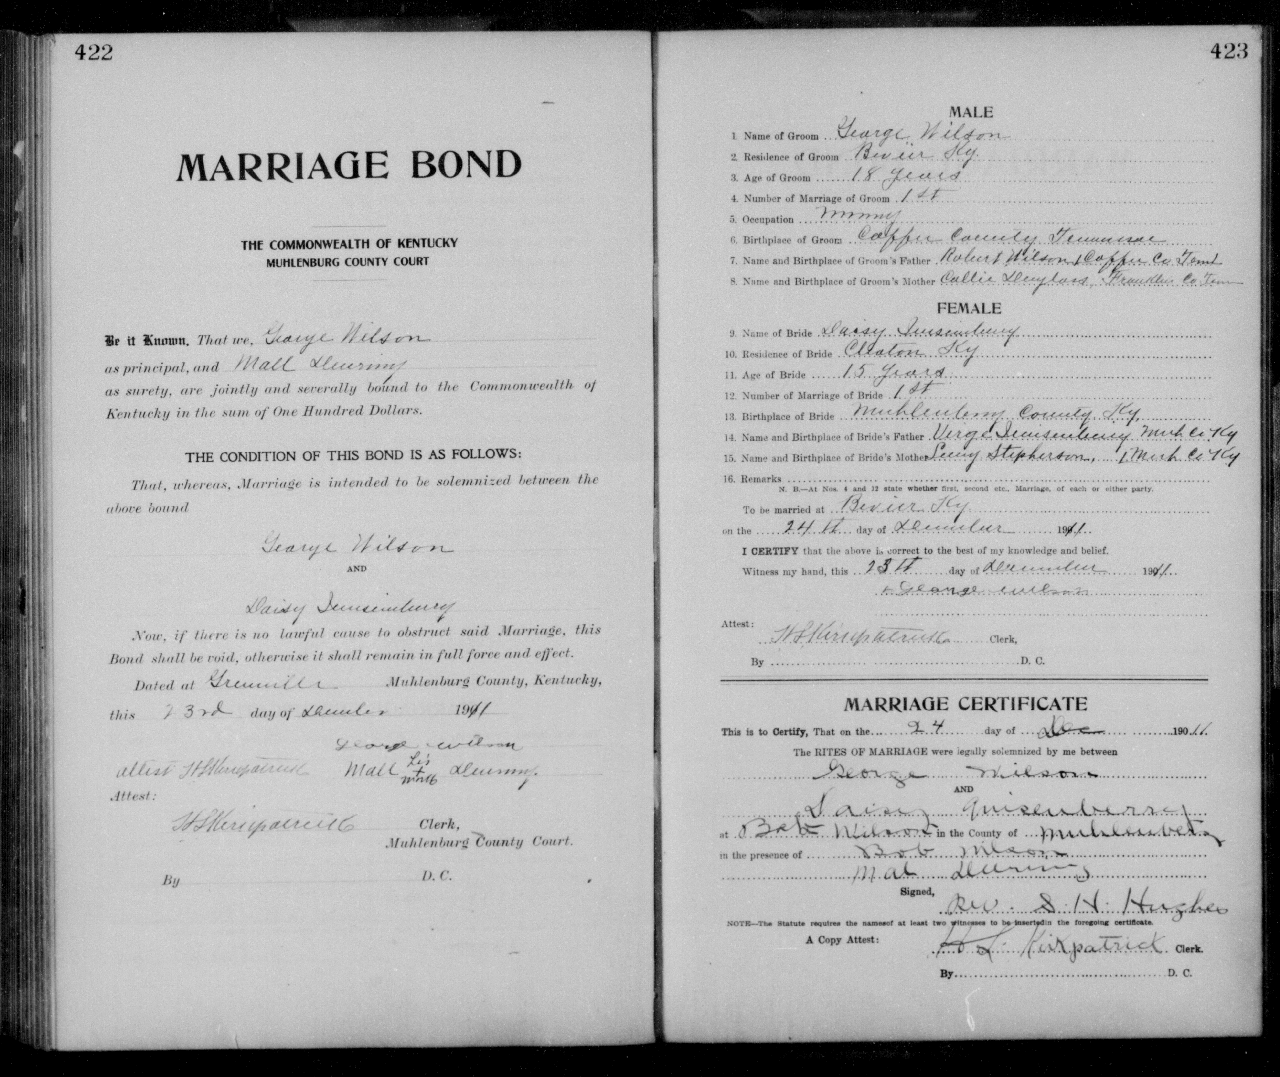 422
MARRIAGE BOND
THE COMMONWEALTH OF KENTUCKY
MUHLENBURG COUNTY COURT
Be it Known, That we, George Wilson
as principal, and Mall Deering
as surety, are jointly and severally bound to the Commonwealth of
Kentucky in the sum of One Hundred Dollars.
THE CONDITION OF THIS BOND IS AS FOLLOWS:
That, whereas, Marriage is intended to be solemnized between the
above bound
George Wilson
AND
Daisy
Now, if there is no lawful cause to obstruct said Marriage, this
Bond shall be void, otherwise it shall remain in full force and effect.
Dated at Greenville Muhlenburg County, Kentucky,
this 23rd day of December 1911
George Wilson
attest H L Kirkpatrick Mall his + mark Deering
Attest:
H L Kirkpatrick Clerk,
Muhlenburg County Court.
By D. C.
423
MALE
1. Name of Groom George Wilson
2. Residence of Groom Bevier Ky.
3. Age of Groom 18 years
4. Number of Marriage of Groom 1st
5. Occupation Mining
6. Birthplace of Groom Coffee County Tennessee
7. Name and Birthplace of Groom's Father Robert Wilson, Coffee Co Tenn
8. Name and Birthplace of Groom's Mother Callie Douglass, Franklin Co Tenn
FEMALE
9. Name of Bride Daisy
10. Residence of Bride Cleaton Ky
11. Age of Bride 15 years
12. Number of Marriage of Bride 1st
13. Birthplace of Bride Muhlenberg County, Ky.
14. Name and Birthplace of Bride's Father Virge Muh Co Ky
15. Name and Birthplace of Bride's Mother Stepherson, Muh Co Ky
16. Remarks
N. B.—At Nos. 4 and 12 state whether first, second etc., Marriage, of each or either party.
To be married at Bevier Ky
on the 24th day of December 1911
I CERTIFY that the above is correct to the best of my knowledge and belief.
Witness my hand, this 23th day of December 1911
x George Wilson
Attest:
H L Kirkpatrick Clerk,
By D. C.
MARRIAGE CERTIFICATE
This is to Certify, That on the 24 day of Dec 190 11
The RITES OF MARRIAGE were legally solemnized by me between
George Wilson
AND
Daisy Quisenberry
at Bob Wilson in the County of Muhlenberg
in the presence of Bob Wilson
Mal Deering
Signed,
Rev. S. H. Hughes
NOTE—The Statute requires the namesof at least two witnesses to be insertedin the foregoing certificate.
A Copy Attest:
H L Kirkpatrick Clerk.
By D. C.